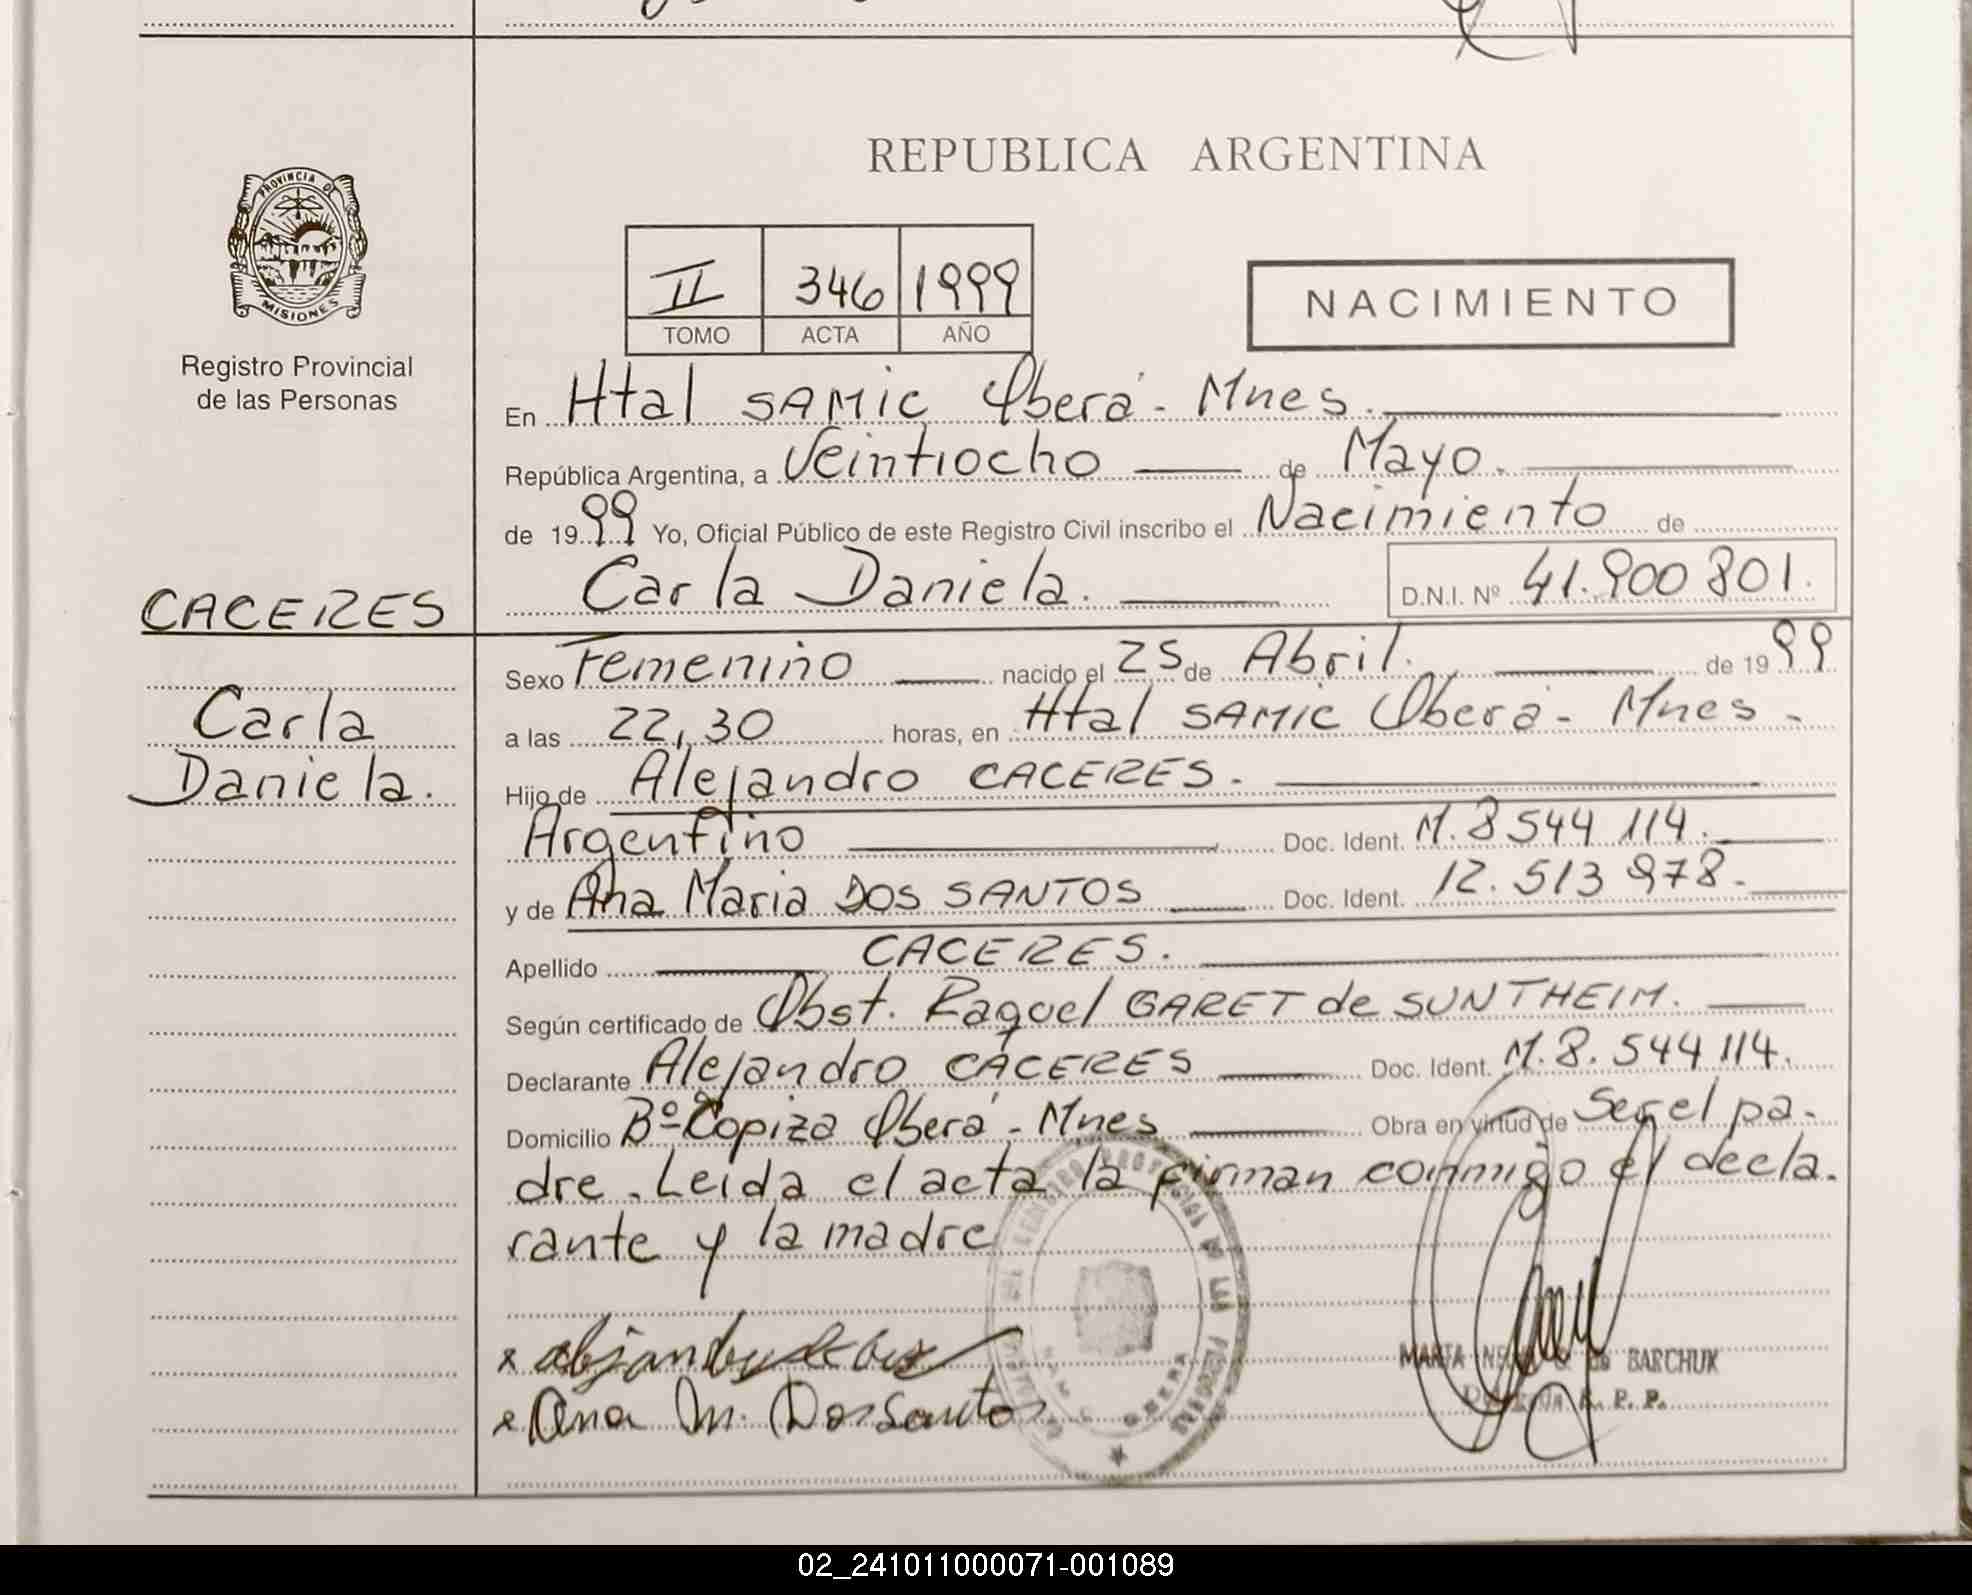 REPUBLICA ARGENTINA
PROVINCIA DE
MISIONES
Registro Provincial
de las Personas
II 346 1999
TOMO ACTA AÑO
NACIMIENTO
En Htal SAMIC Oberá - Mnes.
República Argentina, a Veintiocho de Mayo.
de 1999 Yo, Oficial Público de este Registro Civil inscribo el Nacimiento de
Carla Daniela. D.N.I. Nº 41.900 801.
CACERES
Carla
Daniela.
Sexo Femenino nacido el 25 de Abril. de 1999
a las 22,30 horas, en Htal SAMIC Oberá - Mnes -
Hijo de Alejandro CACERES.
Argentino Doc. Ident. M. 8 544 114.
y de Ana Maria DOS SANTOS Doc. Ident. 12. 513 978.
Apellido CACERES.
Según certificado de Obst. Raquel GARET de SUNTHEIM.
Declarante Alejandro CACERES Doc. Ident. M. 8. 544 114.
Domicilio Bº Copiza Oberá - Mnes Obra en virtud de Ser el pa-
dre. Leida el acta la firman conmigo el decla-
rante y la madre
x
x Ana M. Dos Santos
MARTA de BARCHUK
R. P. P.
OBERA
02_241011000071-001089